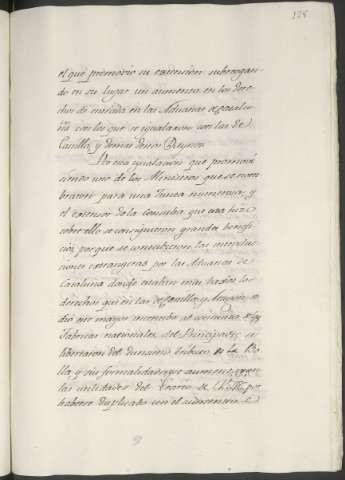 125
el que promovio su extension subrogan-
do en su lugar un aumento en los dere-
chos de entrada en las Aduanas de Catalu-
ña con los que se igualaron con las de
Castilla, y demas de los Reynos.
Por esta igualacion que promovió
siendo uno de los Ministros que se nom-
braron para una Junta numerosa, y
el extensor de la consulta que esta hizo
sobre ello se consiguieron grandes benefi-
cios porque se contuvieron las introduc-
ciones extrangeras por las Aduanas de
Cataluña donde estaban mas bajos los
derechos que en las de Castilla, y Aragon, se
dió un mayor incremento al comercio, y
fabricas nacionales del Principado; se
libertaron del durisimo tributo de la Bo-
lla, y sus formalidades, que aumentaron
las utilidades del Erario de V. M. por
haberse duplicado con el aumento de